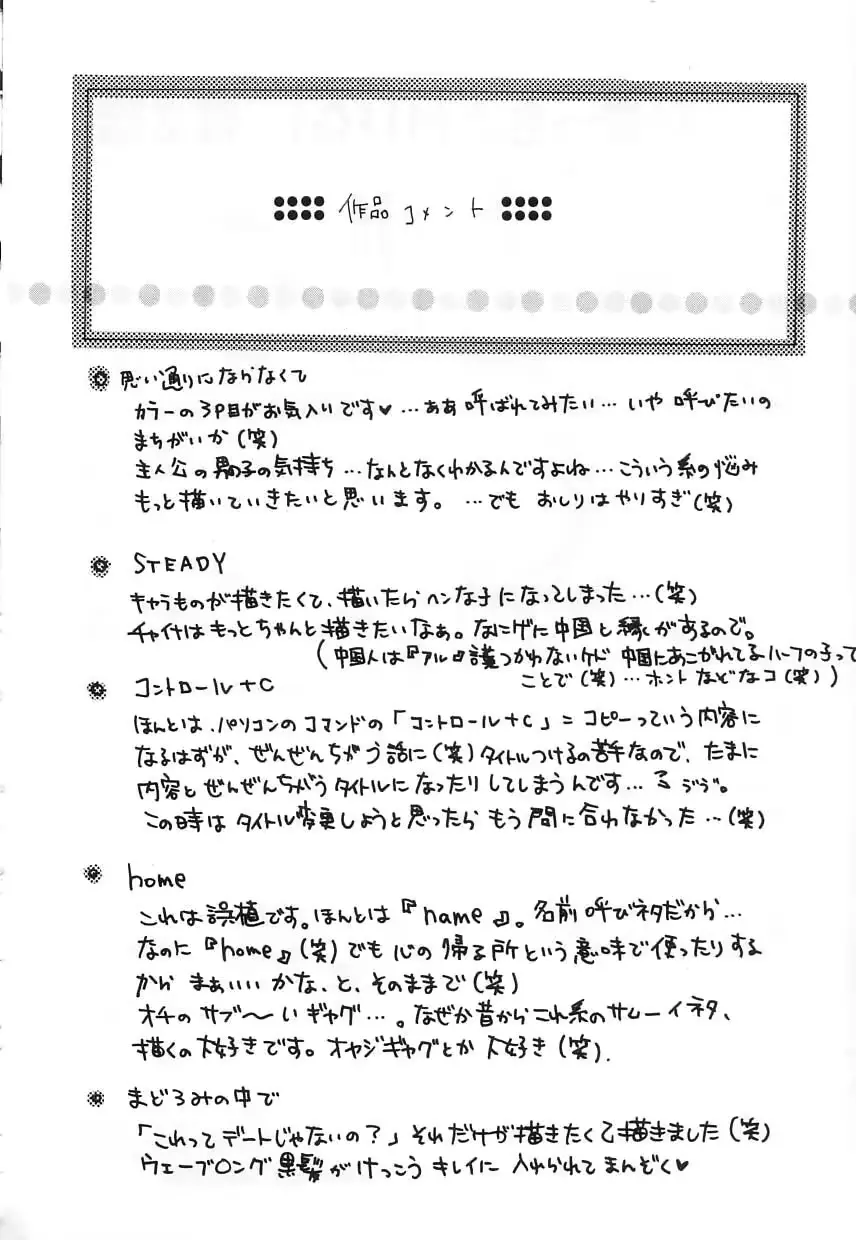 作品コメント
思い通りにならなくて
カラーの3P目がお気入りです♥…ああ 呼ばれてみたい…いや 呼びたいの
まちがいか(笑)
主人公の男の子の気持ち…なんとなくわかるんですよね…こういう系の悩み
もっと描いていきたいと思います。…でも おしりはやりすぎ(笑)
STEADY
キャラものが描きたくて、描いたらヘンな子になってしまった…(笑)
チャイナはもっとちゃんと描きたいなぁ。なにげに中国と縁があるので。
(中国人は『アル』語つかわないケド 中国にあこがれてるハーフの子って
ことで(笑)…ホントなどなコ(笑))
コントロール+C
ほんとは、パソコンのコマンドの「コントロール+C」=コピーっていう内容に
なるはずが、ぜんぜんちがう話に(笑)タイトルつけるの苦手なので、たまに
内容とぜんぜんちがうタイトルになったりしてしまうんです…
この時は タイトル変更しようと思ったら もう間に合わなかった…(笑)
home
これは誤植です。ほんとは『name』。名前呼びネタだから…
なのに『home』(笑)でも 心の帰る所という意味で使ったりする
から まぁいいかな、と、そのままで(笑)
オチの サブ〜いギャグ…。なぜか昔からこれ系のサムーイネタ、
描くの大好きです。オヤジギャグとか 大好き(笑).
まどろみの中で
「これってデートじゃないの?」それだけが描きたくて描きました(笑)
ウェーブロング黒髪がけっこう キレイに 入れられて まんぞく♥